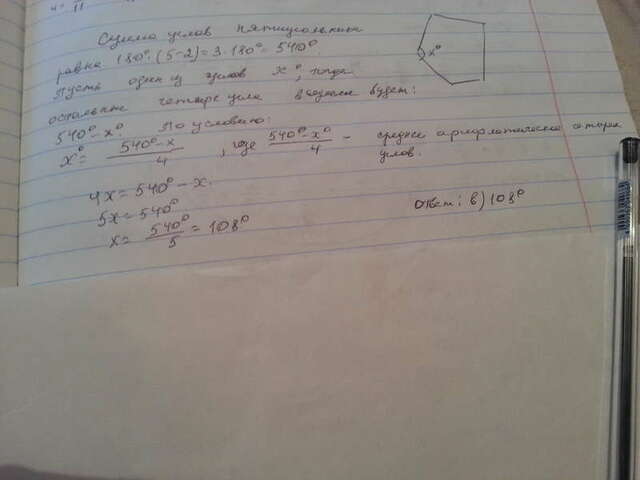 Сумма углов пятиугольника
равна 180°·(5-2)=3·180°=540°
Пусть один из углов x°, тогда
остальные четыре угла в сумме будет:
540°-x° По условию:
x° = 540°-x / 4 , где 540°-x° / 4 - среднее арифметическое
углов.
4x=540°-x.
5x=540°
x= 540° / 5 = 108°
Ответ: в) 108°
x°